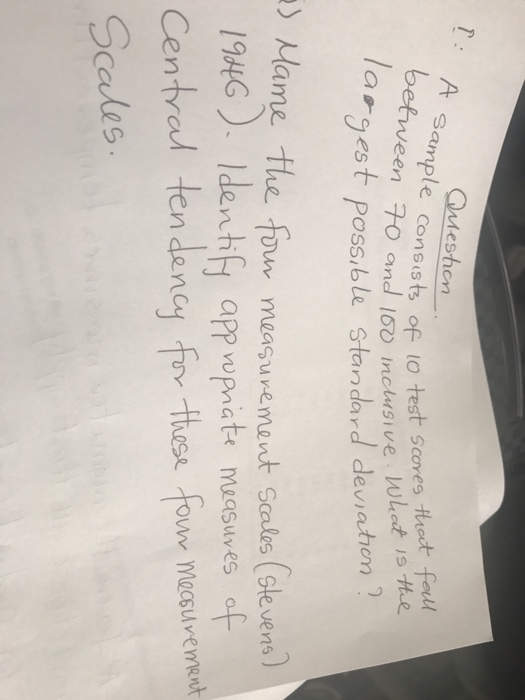 Question
?: A sample consists of 10 test scores that fall
between 70 and 100 inclusive. What is the
largest possible standard deviation?
) Name the four measurement scales (Stevens)
1946). Identify appropriate measures of
Central tendency for these four measurement
Scales.